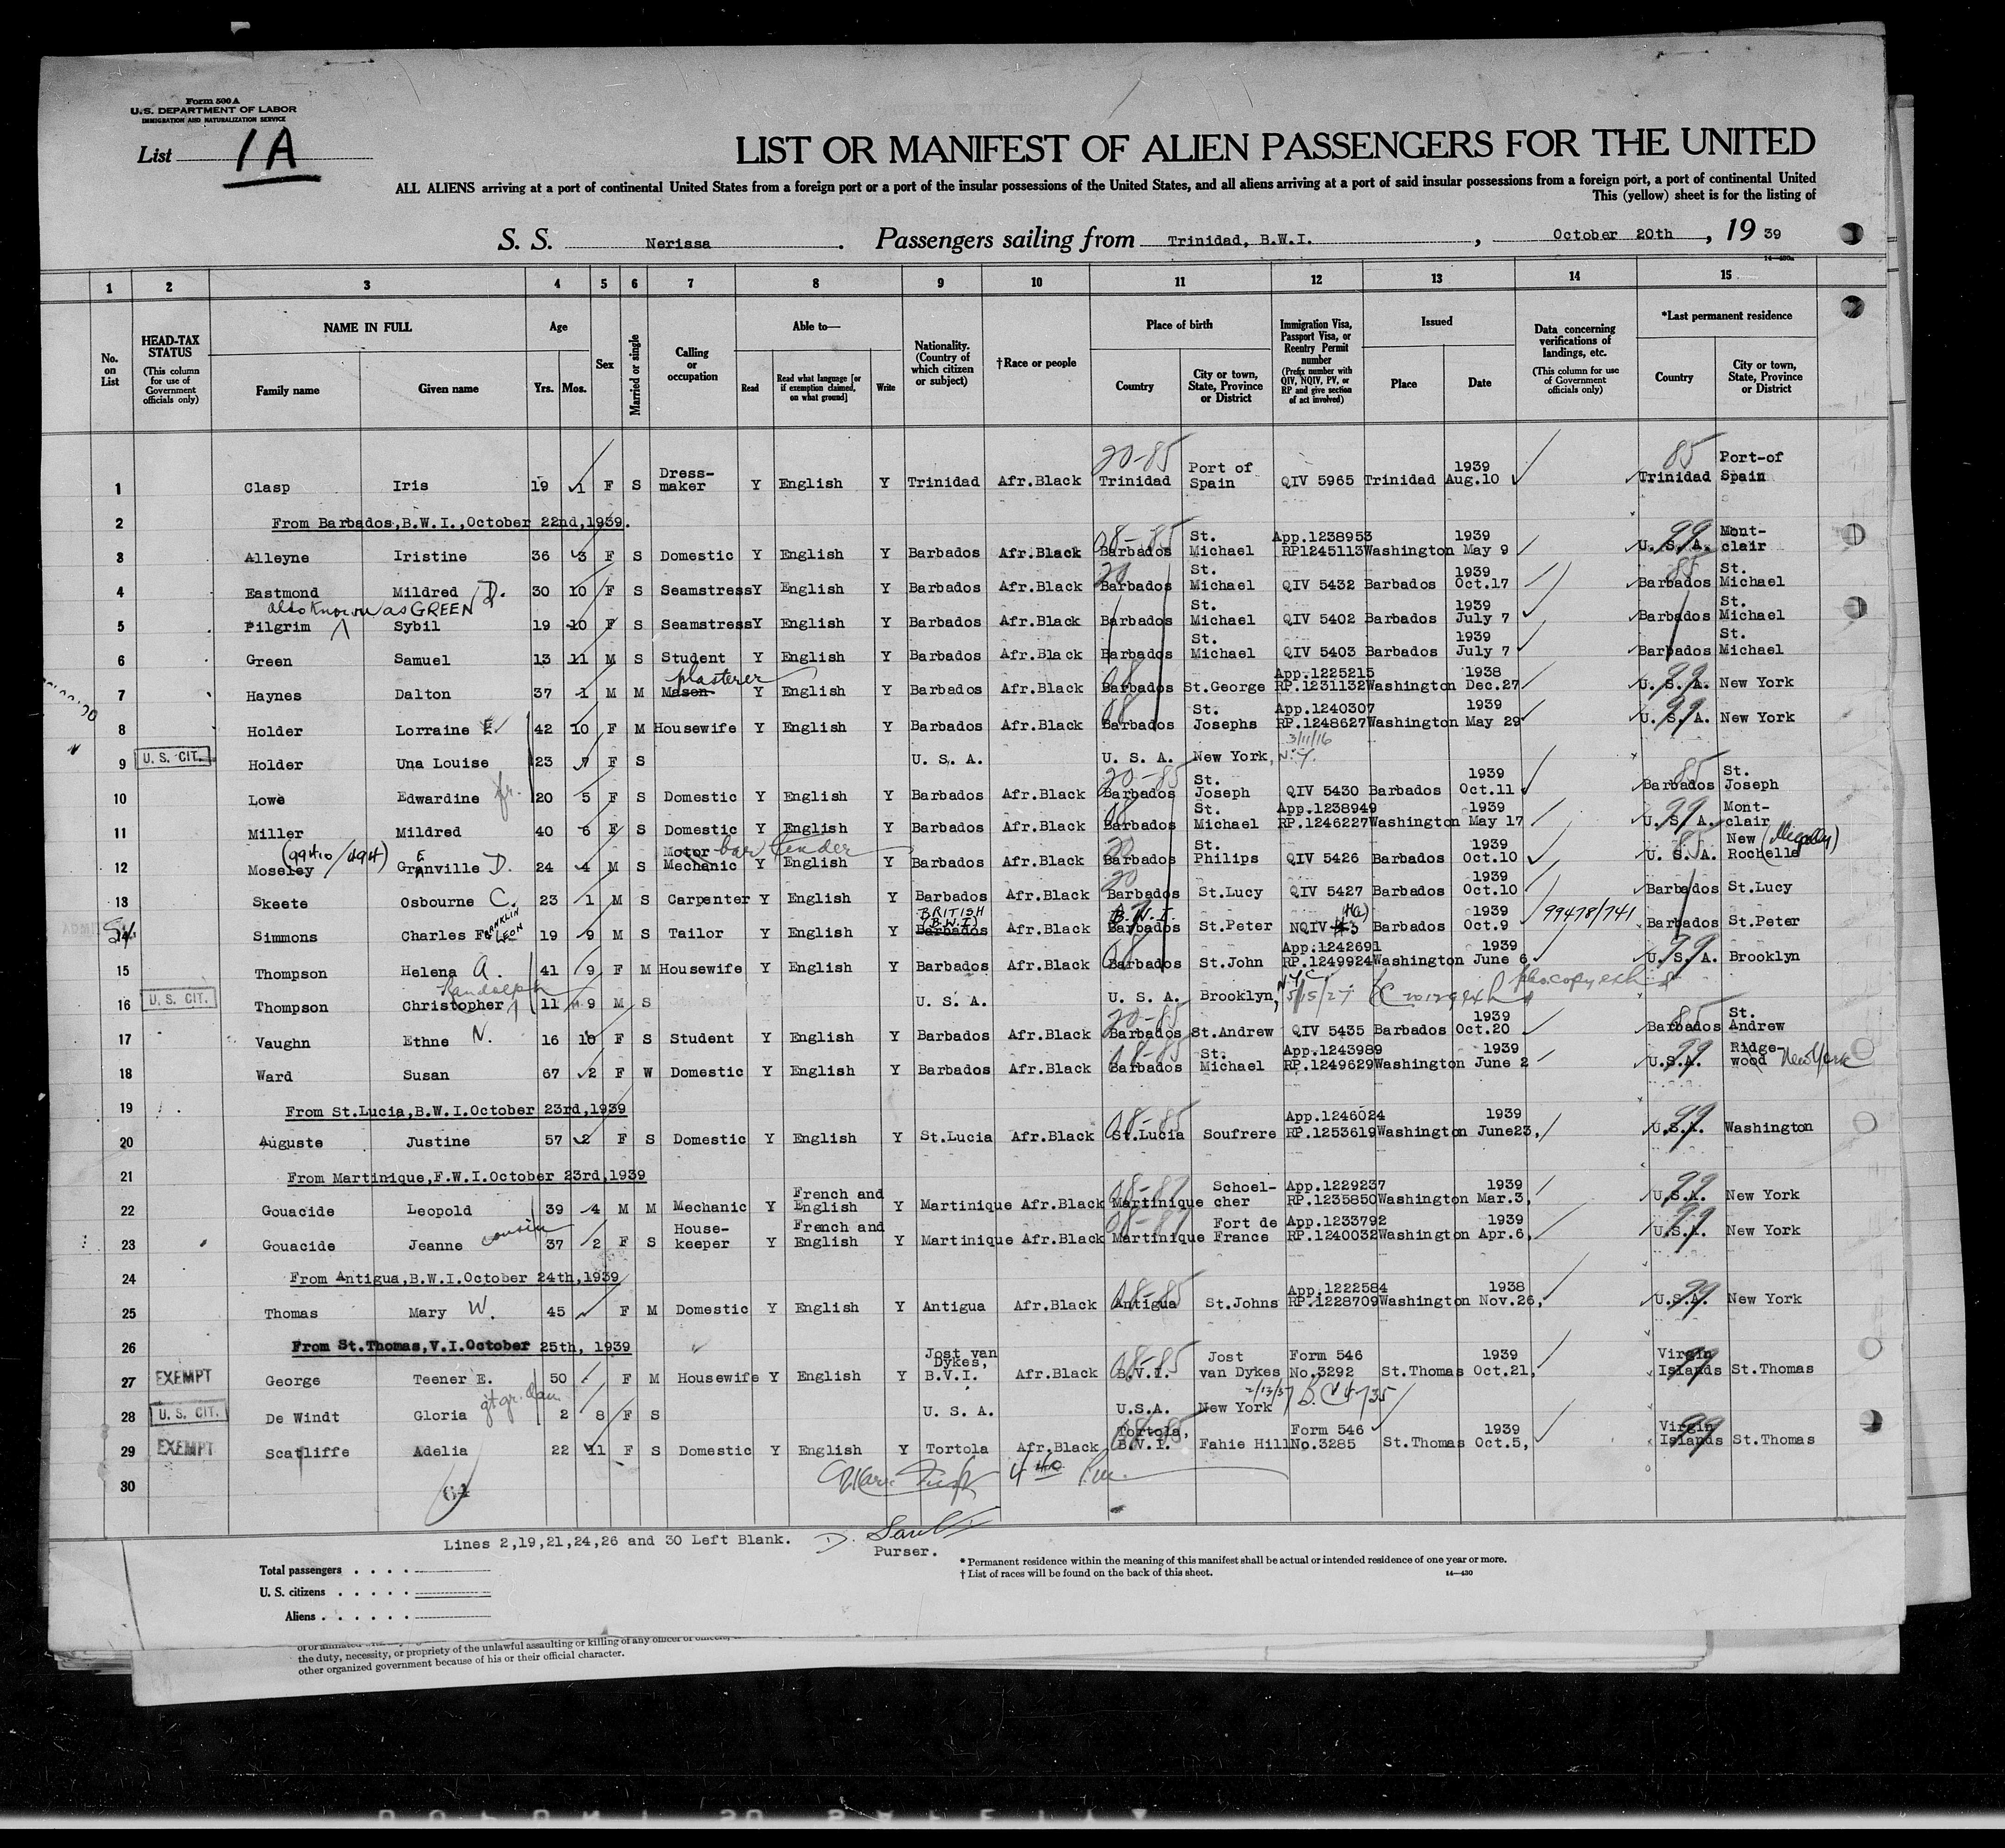 Form 500 A
U.S. DEPARTMENT OF LABOR
IMMIGRATION AND NATURALIZATION SERVICE
List 1A
LIST OR MANIFEST OF ALIEN PASSENGERS FOR THE UNITED
ALL ALIENS arriving at a port of continental United States from a foreign port or a port of the insular possessions of the United States, and all aliens arriving at a port of said insular possessions from a foreign port, a port of continental United
This (yellow) sheet is for the listing of
S. S. Nerissa. Passengers sailing from Trinidad, B.W.I., October 20th, 19 39
1 2 3 4 5 6 7 8 9 10 11 12 13 14 15
No. on List
HEAD-TAX STATUS (This column for use of Government officials only)
NAME IN FULL Family name Given name
Age Yrs. Mos.
Sex
Married or single
Calling or occupation
Able to— Read Read what language [or if exemption claimed, on what ground] Write
Nationality. (Country of which citizen or subject)
†Race or people
Place of birth Country City or town, State, Province or District
Immigration Visa, Passport Visa, or Reentry Permit number (Prefix number with QIV, NQIV, PV, or RP and give section of act involved)
Issued Place Date
Data concerning verifications of landings, etc. (This column for use of Government officials only)
*Last permanent residence Country City or town, State, Province or District
1 Clasp Iris 19 1 F S Dress-maker Y English Y Trinidad Afr.Black 20-85 Trinidad Port of Spain QIV 5965 Trinidad 1939 Aug.10 85 Trinidad Port-of Spain
2 From Barbados,B.W.I.,October 22nd,1939.
3 Alleyne Iristine 36 3 F S Domestic Y English Y Barbados Afr.Black 08-85 Barbados St. Michael App.1238953 RP1245113 Washington 1939 May 9 99 U. S. A. Mont-clair
4 Eastmond Mildred D. 30 10 F S Seamstress Y English Y Barbados Afr.Black 20 Barbados St. Michael QIV 5432 Barbados 1939 Oct.17 85 Barbados St. Michael
also known as GREEN
5 Pilgrim Sybil 19 10 F S Seamstress Y English Y Barbados Afr.Black Barbados St. Michael QIV 5402 Barbados 1939 July 7 Barbados St. Michael
6 Green Samuel 13 11 M S Student Y English Y Barbados Afr.Black Barbados St. Michael QIV 5403 Barbados 1939 July 7 Barbados St. Michael
7 Haynes Dalton 37 1 M M Mason plasterer Y English Y Barbados Afr.Black 08 Barbados St.George App.1225215 RP.1231132 Washington 1938 Dec.27 99 U. S. A. New York
8 Holder Lorraine E. 42 10 F M Housewife Y English Y Barbados Afr.Black 08 Barbados St. Josephs App.1240307 RP.1248627 Washington 1939 May 29 99 U. S. A. New York
9 U. S. CIT. Holder Una Louise 23 7 F S U. S. A. U. S. A. New York, N.Y. 3/11/16
10 Lowe Edwardine 20 5 F S Domestic Y English Y Barbados Afr.Black 20-85 Barbados St. Joseph QIV 5430 Barbados 1939 Oct.11 85 Barbados St. Joseph
11 Miller Mildred 40 6 F S Domestic Y English Y Barbados Afr.Black 08 Barbados St. Michael App.1238949 RP.1246227 Washington 1939 May 17 99 U. S. A. Mont-clair
12 Moseley Granville E D. 24 4 M S Motor Mechanic bar tender Y English Y Barbados Afr.Black 20 Barbados St. Philips QIV 5426 Barbados 1939 Oct.10 85 U. S. A. New Rochelle
13 Skeete Osbourne C. 23 1 M S Carpenter Y English Y Barbados Afr.Black 20 Barbados St.Lucy QIV 5427 Barbados 1939 Oct.10 Barbados St.Lucy
14 Simmons Charles FRANKLIN LEON 19 9 M S Tailor Y English Y BRITISH (B.W.I) Barbados Afr.Black B.W.I. Barbados St.Peter NQIV Barbados 1939 Oct.9 99478/741 Barbados St.Peter
15 Thompson Helena A. 41 9 F M Housewife Y English Y Barbados Afr.Black 08 Barbados St.John App.1242691 RP.1249924 Washington 1939 June 6 99 U. S. A. Brooklyn
16 U. S. CIT. Thompson Christopher Randolph 11 9 M S U. S. A. U. S. A. Brooklyn, N.Y.C. 5/15/27
17 Vaughn Ethne N. 16 10 F S Student Y English Y Barbados Afr.Black 20-85 Barbados St.Andrew QIV 5435 Barbados 1939 Oct.20 85 Barbados St. Andrew
18 Ward Susan 67 2 F W Domestic Y English Y Barbados Afr.Black 08-85 Barbados St. Michael App.1243989 RP.1249629 Washington 1939 June 2 99 U.S.A. Ridge-wood New York
19 From St.Lucia,B.W.I.October 23rd,1939
20 Auguste Justine 57 2 F S Domestic Y English Y St.Lucia Afr.Black 08-85 St.Lucia Soufrere App.1246024 RP.1253619 Washington 1939 June23, 99 U.S.A. Washington
21 From Martinique,F.W.I.October 23rd,1939
22 Gouacide Leopold 39 4 M M Mechanic Y French and English Y Martinique Afr.Black 08-87 Martinique Schoel-cher App.1229237 RP.1235850 Washington 1939 Mar.3, 99 U.S.A. New York
23 Gouacide Jeanne cousin 37 2 F S House-keeper Y French and English Y Martinique Afr.Black 08-87 Martinique Fort de France App.1233792 RP.1240032 Washington 1939 Apr.6, 99 U.S.A. New York
24 From Antigua,B.W.I.October 24th,1939
25 Thomas Mary W. 45 F M Domestic Y English Y Antigua Afr.Black 08-85 Antigua St.Johns App.1222584 RP.1228709 Washington 1938 Nov.26, 99 U.S.A. New York
26 From St.Thomas,V.I.October 25th, 1939
27 EXEMPT George Teener E. 50 F M Housewife Y English Y Jost van Dykes, B.V.I. Afr.Black 08-85 B.V.I. Jost van Dykes Form 546 No.3292 St.Thomas 1939 Oct.21, 99 Virgin Islands St.Thomas
28 U. S. CIT. De Windt Gloria gt gr. dau. 2 8 F S U. S. A. U.S.A. New York 2/13/37
29 EXEMPT Scatliffe Adelia 22 11 F S Domestic Y English Y Tortola Afr.Black 08-85 Tortola, B.V.I. Fahie Hill Form 546 No.3285 St.Thomas 1939 Oct.5, 99 Virgin Islands St.Thomas
30
64
Lines 2,19,21,24,26 and 30 Left Blank.
Purser.
Total passengers
U. S. citizens
Aliens
* Permanent residence within the meaning of this manifest shall be actual or intended residence of one year or more.
† List of races will be found on the back of this sheet.
14—430
the duty, necessity, or propriety of the unlawful assaulting or killing of any officer or officers,
other organized government because of his or their official character.